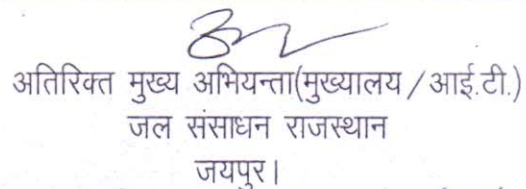 अतिरिक्त मुख्य अभियन्ता(मुख्यालय / आई.टी.)
जल संसाधन राजस्थान
जयपुर।